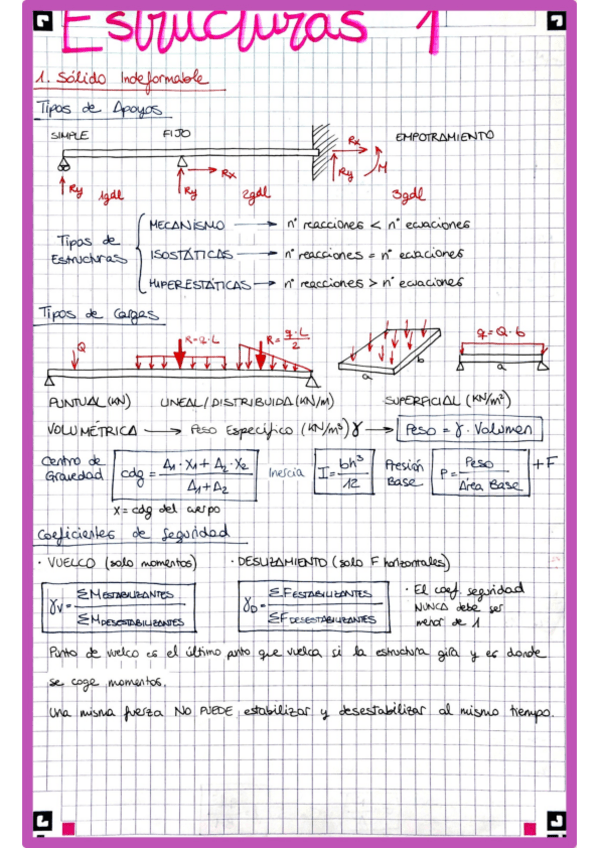 Estructuras 1
1. Sólido Indeformable
Tipos de Apoyos
SIMPLE FIJO EMPOTRAMIENTO
Rx
Rx M
Ry Ry Ry
1gdl 2gdl 3gdl
Tipos de Estructuras
MECANISMO → nº reacciones < nº ecuaciones
ISOSTÁTICAS → nº reacciones = nº ecuaciones
HIPERESTÁTICAS → nº reacciones > nº ecuaciones
Tipos de Cargas
Q R=Q·L R=q·L/2 q=Q·b
a b a
PUNTUAL (KN) LINEAL/DISTRIBUIDA (KN/M) SUPERFICIAL (KN/m²)
VOLUMÉTRICA → Peso Específico (KN/m³) γ → Peso = γ · Volumen
Centro de Gravedad cdg = (A₁·X₁ + A₂·X₂)/(A₁+A₂) Inercia I = bh³/12 Presión Base P = Peso/Area Base + F
x = cdg del cuerpo
Coeficientes de Seguridad
· VUELCO (solo momentos) · DESLIZAMIENTO (solo F horizontales)
γv = ΣMESTABILIZANTES/ΣMDESESTABILIZANTES γD = ΣFESTABILIZANTES/ΣFDESESTABILIZANTES
· El coef. seguridad
NUNCA debe ser
menor de 1
Punto de vuelco es el último punto que vuelca si la estructura gira y es donde
se coge momentos.
Una misma fuerza NO PUEDE estabilizar y desestabilizar al mismo tiempo.